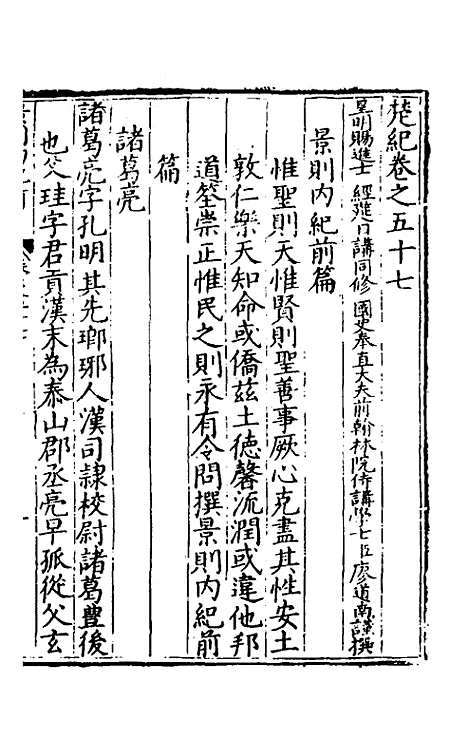 楚紀卷之五十七
皇明賜進士 經筵日講同修 國史奉直大夫前翰林院侍講學士臣廖道南謹撰
景則内紀前篇
惟聖則天惟賢則聖善事厥心克盡其性安土
敦仁樂天知命或僑茲土德馨流潤或違他邦
道筌崇正惟民之則永有令問撰景則内紀前
篇
諸葛亮
諸葛亮字孔明其先瑯琊人漢司隷校尉諸葛豐後
也父珪字君貢漢末為泰山郡丞亮早孤從父玄